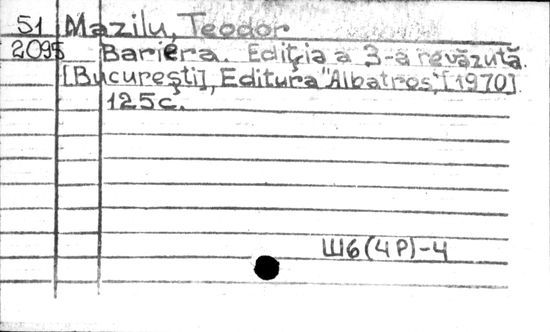 51 Mazilu, Teodor
2095 Bariera. Ediţia a 3-a revăzută.
[Bucureşti], Editura "Albatros", [1970]
125c.
Ш6(4Р)-4